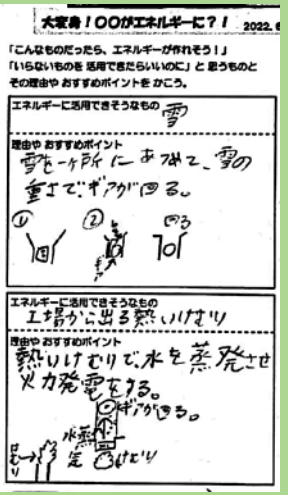 大変身！〇〇がエネルギーに？！ 2022.6
「こんなものだったら、エネルギーが作れそう！」
「いらないものを 活用できたらいいのに」と 思うものと
その理由や おすすめポイントを かこう。
エネルギーに活用できそうなもの
雪
理由や おすすめポイント
雪を一ヶ所に あつめて、雪の
重さで、ギアが回る。
① ② 回る
エネルギーに活用できそうなもの
工場から出る熱いけむり
理由や おすすめポイント
熱いけむりで、水を蒸発させ
火力発電をする。
ギアが回る。
水蒸
気
けむり
けむり